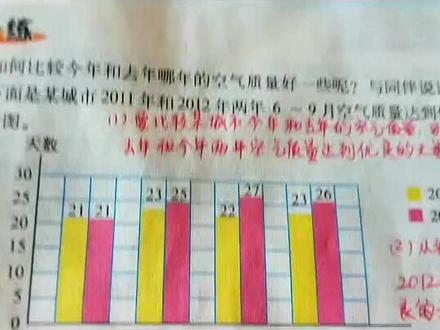 练
如何比较今年和去年哪年的空气质量好一些呢?与同伴说
面是某城市2011年和2012年两年6~9月空气质量达到
图。
(1)要比较某城市今年和去年的空气质量,
去年和今年两年空气质量达到优良的天
天数
30
25
20
15
10
5
0
21 21 23 25 22 27 23 26
20
20
(2)从
2012
良的